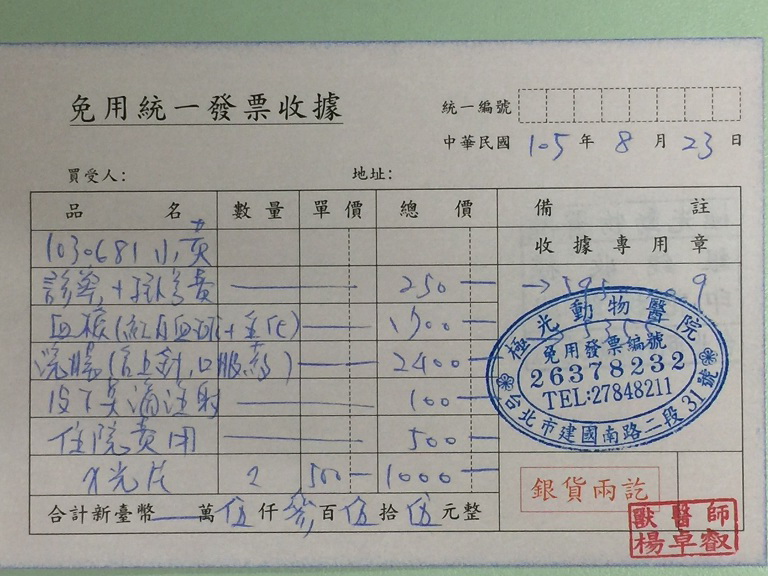 免用統一發票收據
統一編號
中華民國 105 年 8 月 23 日
買受人： 地址：
品名 數量 單價 總價 備註
1030681 小黃 收據專用章
診察 + 費 250
血檢 (
浣腸 (止針,口服藥) 2400
皮下點滴注射 100
住院費用 500
X光片 2 500 1000
合計新臺幣 萬 伍 仟 參 百 伍 拾 伍 元整
極光動物醫院
免用發票編號
26378232
TEL:27848211
台北市建國南路二段31號
銀貨兩訖
獸醫師
楊卓叡